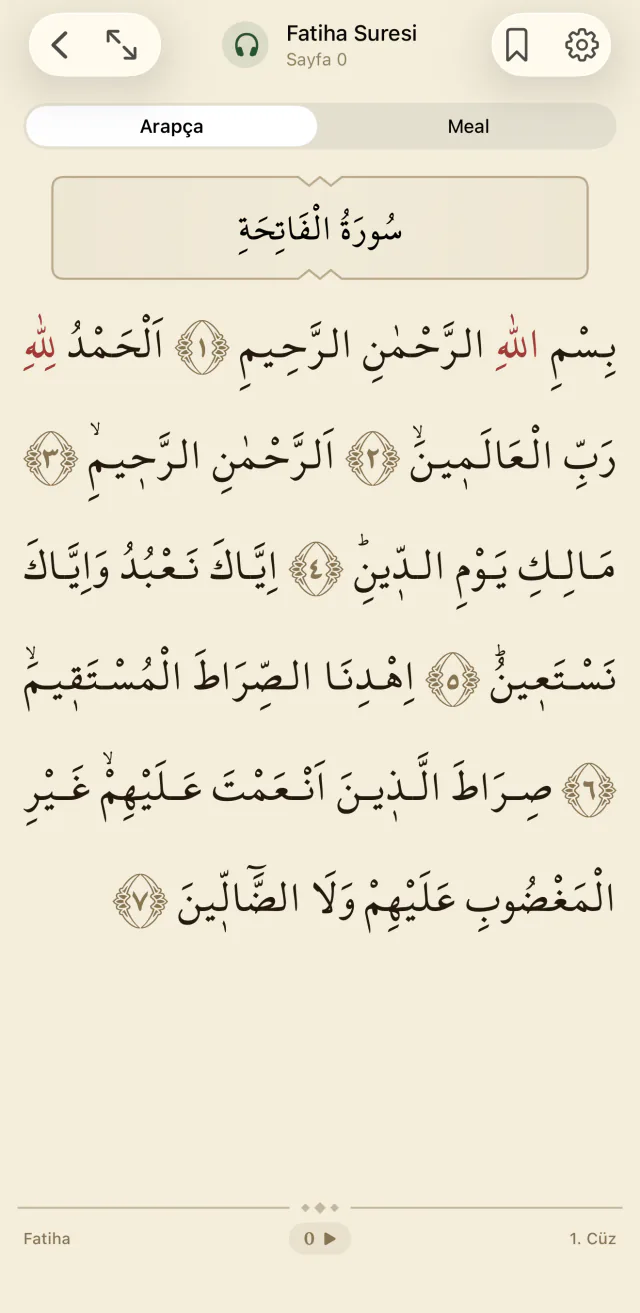 Fatiha Suresi
Sayfa 0
Arapça
Meal
سُورَةُ الْفَاتِحَةِ
بِسْمِ اللّٰهِ الرَّحْمٰنِ الرَّحِيمِ ﴿١﴾ اَلْحَمْدُ لِلّٰهِ
رَبِّ الْعَالَم۪ينَۙ ﴿٢﴾ اَلرَّحْمٰنِ الرَّح۪يمِۙ ﴿٣﴾
مَالِكِ يَوْمِ الدّ۪ينِۜ ﴿٤﴾ اِيَّاكَ نَعْبُدُ وَاِيَّاكَ
نَسْتَع۪ينُۜ ﴿٥﴾ اِهْدِنَا الصِّرَاطَ الْمُسْتَق۪يمَۙ
﴿٦﴾ صِرَاطَ الَّذ۪ينَ اَنْعَمْتَ عَلَيْهِمْۙ غَيْرِ
الْمَغْضُوبِ عَلَيْهِمْ وَلَا الضَّٓالّ۪ينَ ﴿٧﴾
Fatiha
0
1. Cüz